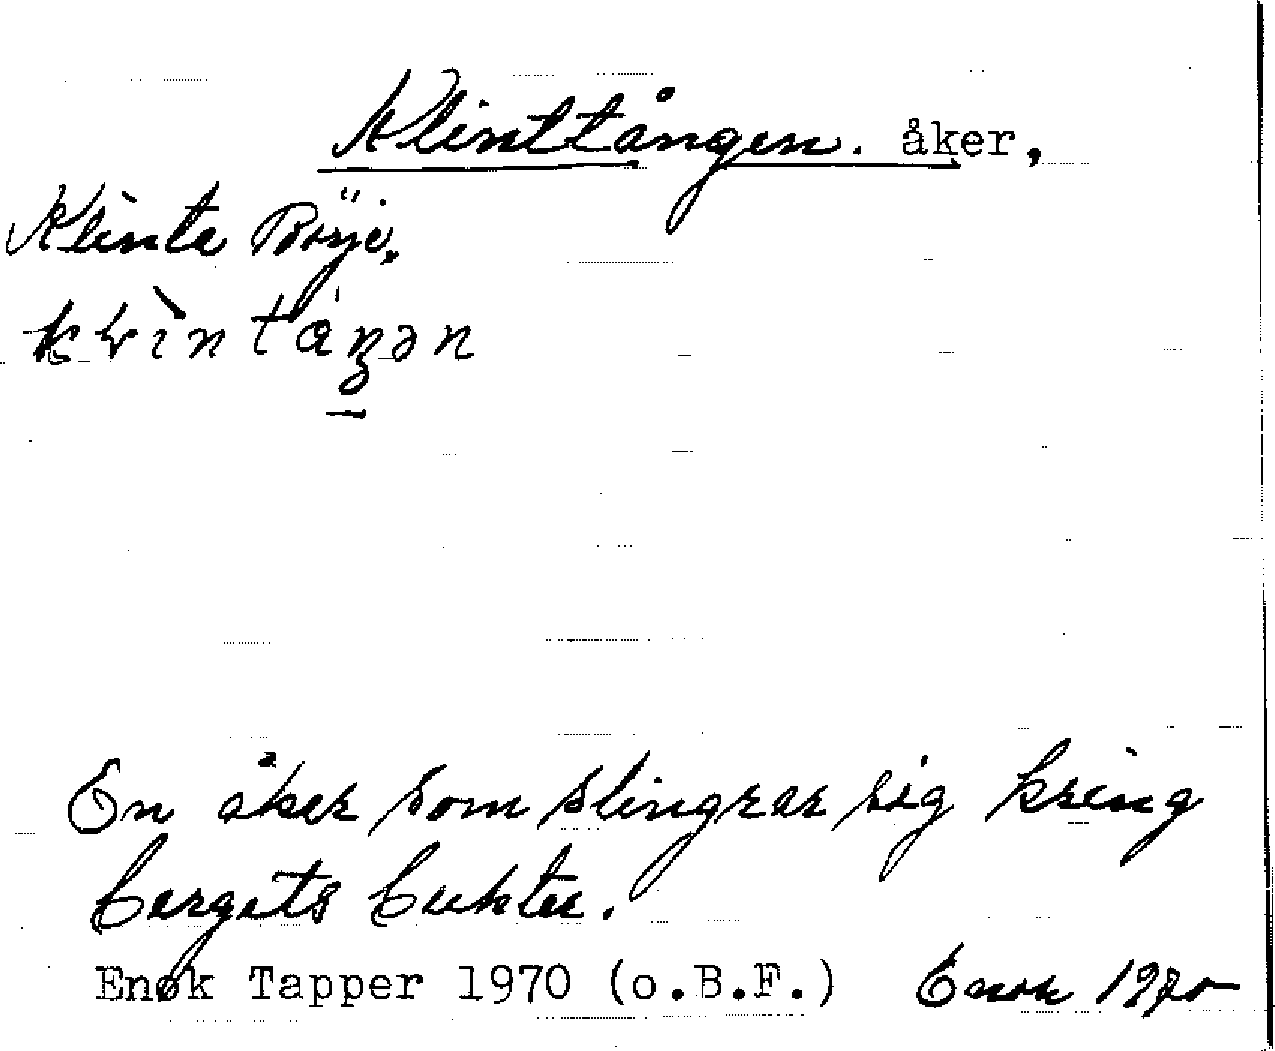 Klinttången. åker,
Klinta Börje.
En åker som slingrar sig kring
bergets bukter.
Enok Tapper 1970 (o.B.F.) Enok 1970